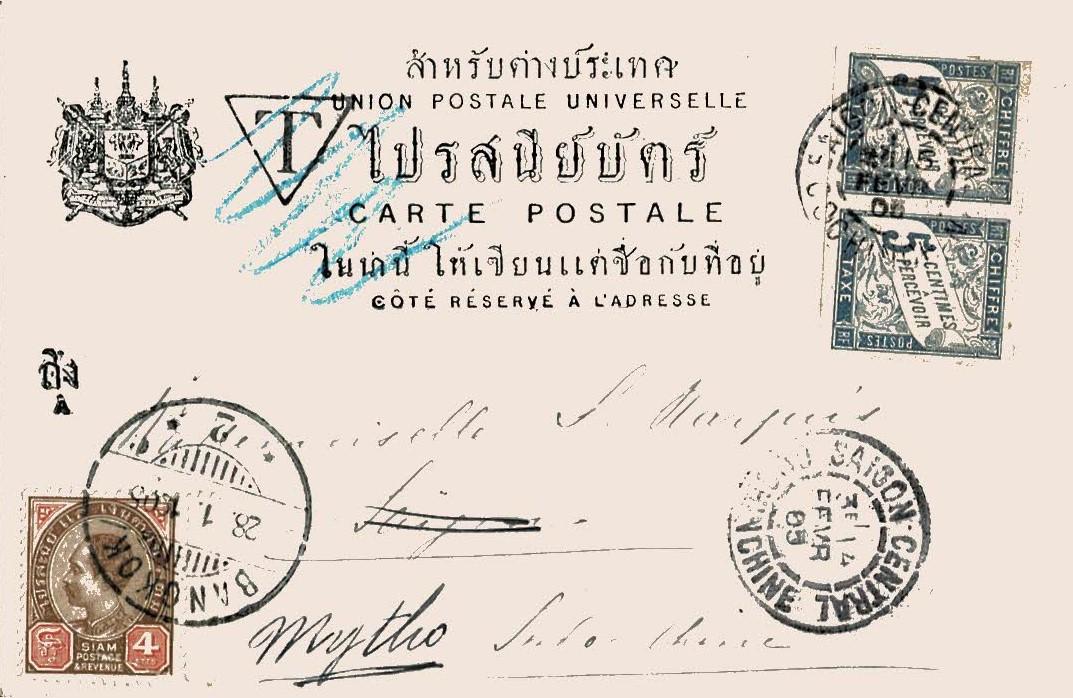 สำหรับต่างประเทศ
UNION POSTALE UNIVERSELLE
T
ไปรสนีย์บัตร์
CARTE POSTALE
ในน่านี้ ให้เขียนแต่ชื่อกับที่อยู่
CÔTÉ RÉSERVÉ À L'ADRESSE
POSTES
CHIFFRE
SAIGON-CENTRAL
FEVR
05
5
CENTIMES
À
PERCEVOIR
CHIFFRE
TAXE
POSTES
RF
ถึง
A
Mademoiselle S. Marquis
Saigon
Mytho Indo-Chine
2
28.1.1905
BANGKOK
SIAM
POSTAGE
& REVENUE
4
ATTS
SAIGON-CENTRAL
14
FEVR
05
COCHINCHINE